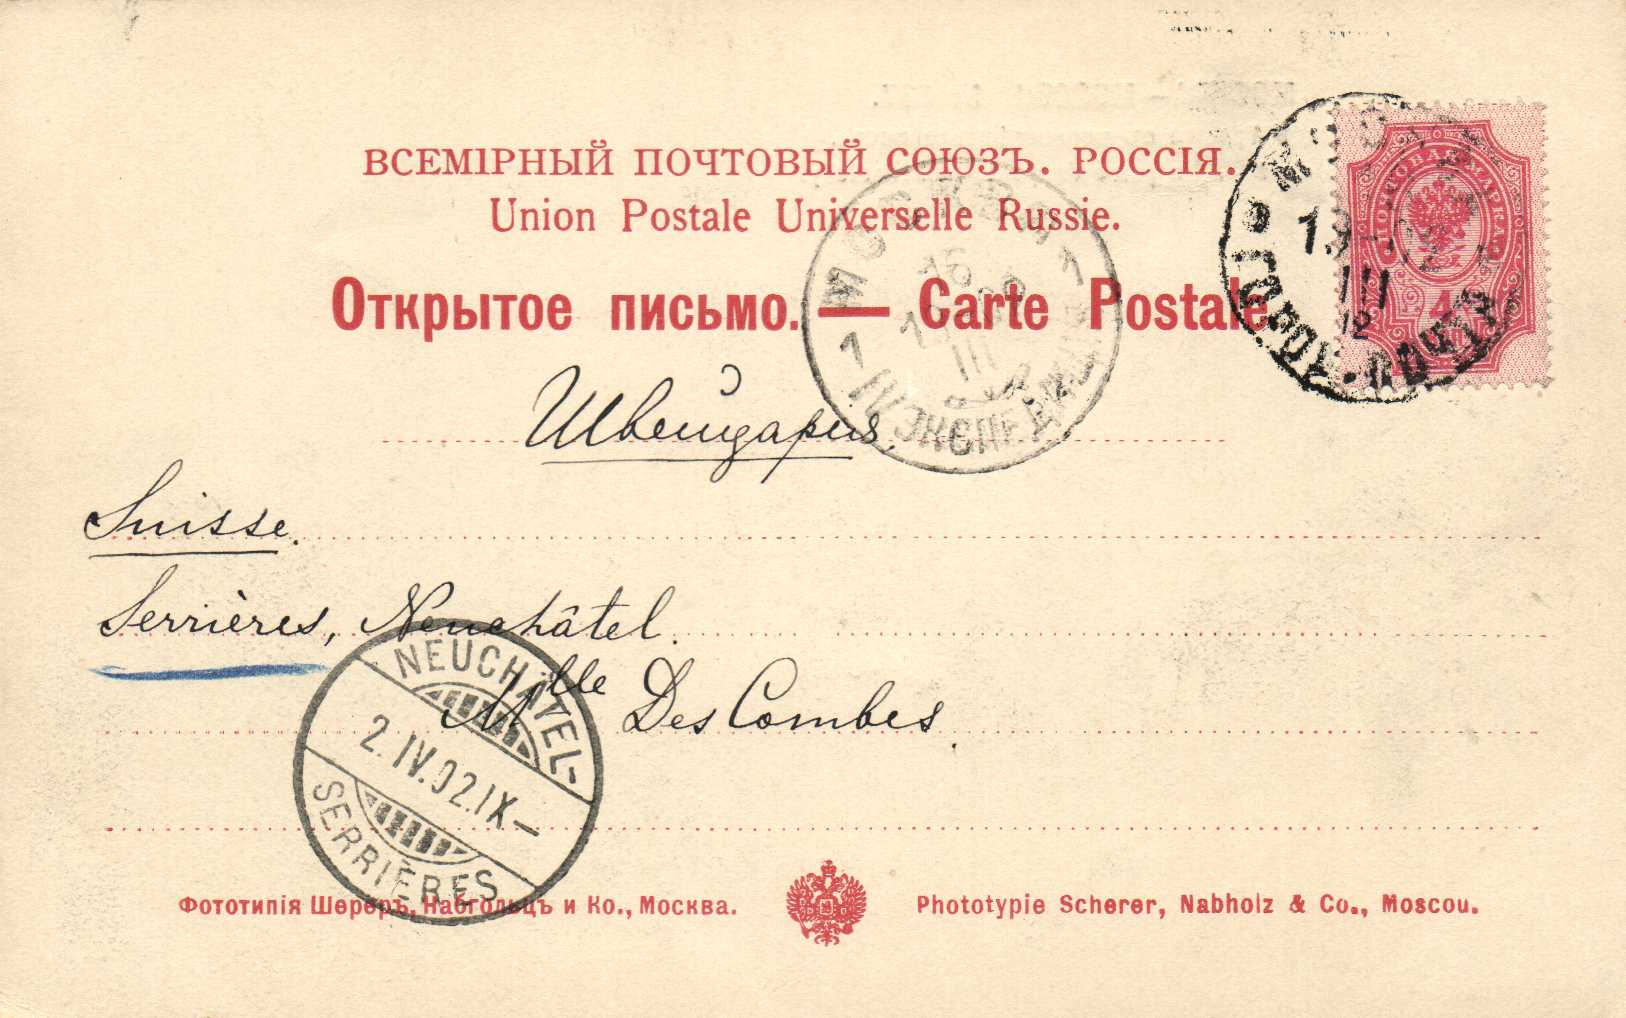 ВСЕМІРНЫЙ ПОЧТОВЫЙ СОЮЗЪ. РОССІЯ.
Union Postale Universelle Russie.
Открытое письмо. — Carte Postale
ПОЧТОВАЯ МАРКА
4
МОСКВА
ГОРОД. ПОЧТА
III
МОСКВА
ЭКСПЕДИЦ.
III
Швейцарія.
Suisse.
Serrières, Neuchâtel.
Mlle Des Combes.
NEUCHATEL-
2. IV. 02. IX—
SERRIÈRES
Фототипія Шереръ, Набгольцъ и Ко., Москва.
Phototypie Scherer, Nabholz & Co., Moscou.